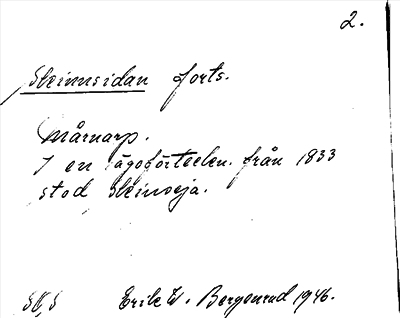 2.
Skinnsidan forts.
Mårnarp.
I en ägoförteckn. från 1833
stod Skinseja.
Erik W. Bergenrud 1946.